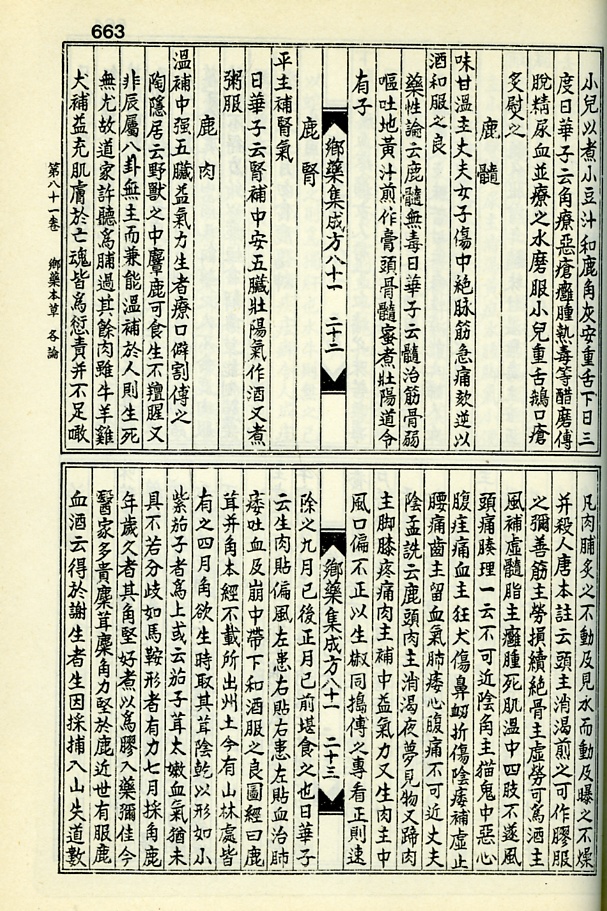 663
小兒以煮小豆汁和鹿角灰安重舌下日三
度日華子云角療惡瘡癰腫熱毒等醋磨傅
脫精尿血並療之水磨服小兒重舌鵝口瘡
炙熨之
鹿髓
味甘溫主丈夫女子傷中絶脉筋急痛欬逆以
酒和服之良
藥性論云鹿髓無毒日華子云髓治筋骨弱
嘔吐地黃汁煎作膏頭骨髓蜜煮壯陽道令
有子
鄕藥集成方八十一 二十二
鹿腎
平主補腎氣
日華子云腎補中安五臟壯陽氣作酒又煮
粥服
鹿肉
溫補中强五臟益氣力生者療口僻割傅之
陶隱居云野獸之中麞鹿可食生不羶腥又
非辰屬八卦無主而兼能溫補於人則生死
無尤故道家許聽爲脯過其餘肉雖牛羊雞
犬補益充肌膚於亡魂皆爲愆責并不足噉
第八十一卷 鄕藥本草 各論
凡肉脯炙之不動及見水而動及曝之不燥
并殺人唐本註云頭主消渴煎之可作膠服
之彌善筋主勞損續絶骨主虛勞可爲酒主
風補虛髓脂主癰腫死肌溫中四肢不遂風
頭痛腠理一云不可近陰角主猫鬼中惡心
腹疰痛血主狂犬傷鼻衂折傷陰痿補虛止
腰痛齒主留血氣肺痿心腹痛不可近丈夫
陰孟詵云鹿頭肉主消渴夜夢見物又蹄肉
主脚膝疼痛肉主補中益氣力又生肉主中
風口偏不正以生椒同搗傅之專看正則速
鄕藥集成方八十一 二十三
除之九月已後正月已前堪食之也日華子
云生肉貼偏風左患右貼右患左貼血治肺
痿吐血及崩中帶下和酒服之良圖經曰鹿
茸并角本經不載所出州土今有山林處皆
有之四月角欲生時取其茸陰乾以形如小
紫茄子者爲上或云茄子茸太嫩血氣猶未
具不若分歧如馬鞍形者有力七月採角鹿
年歲久者其角堅好煮以爲膠入藥彌佳今
醫家多貴麋茸麋角力堅於鹿近世有服鹿
血酒云得於謝生者生因採捕入山失道數